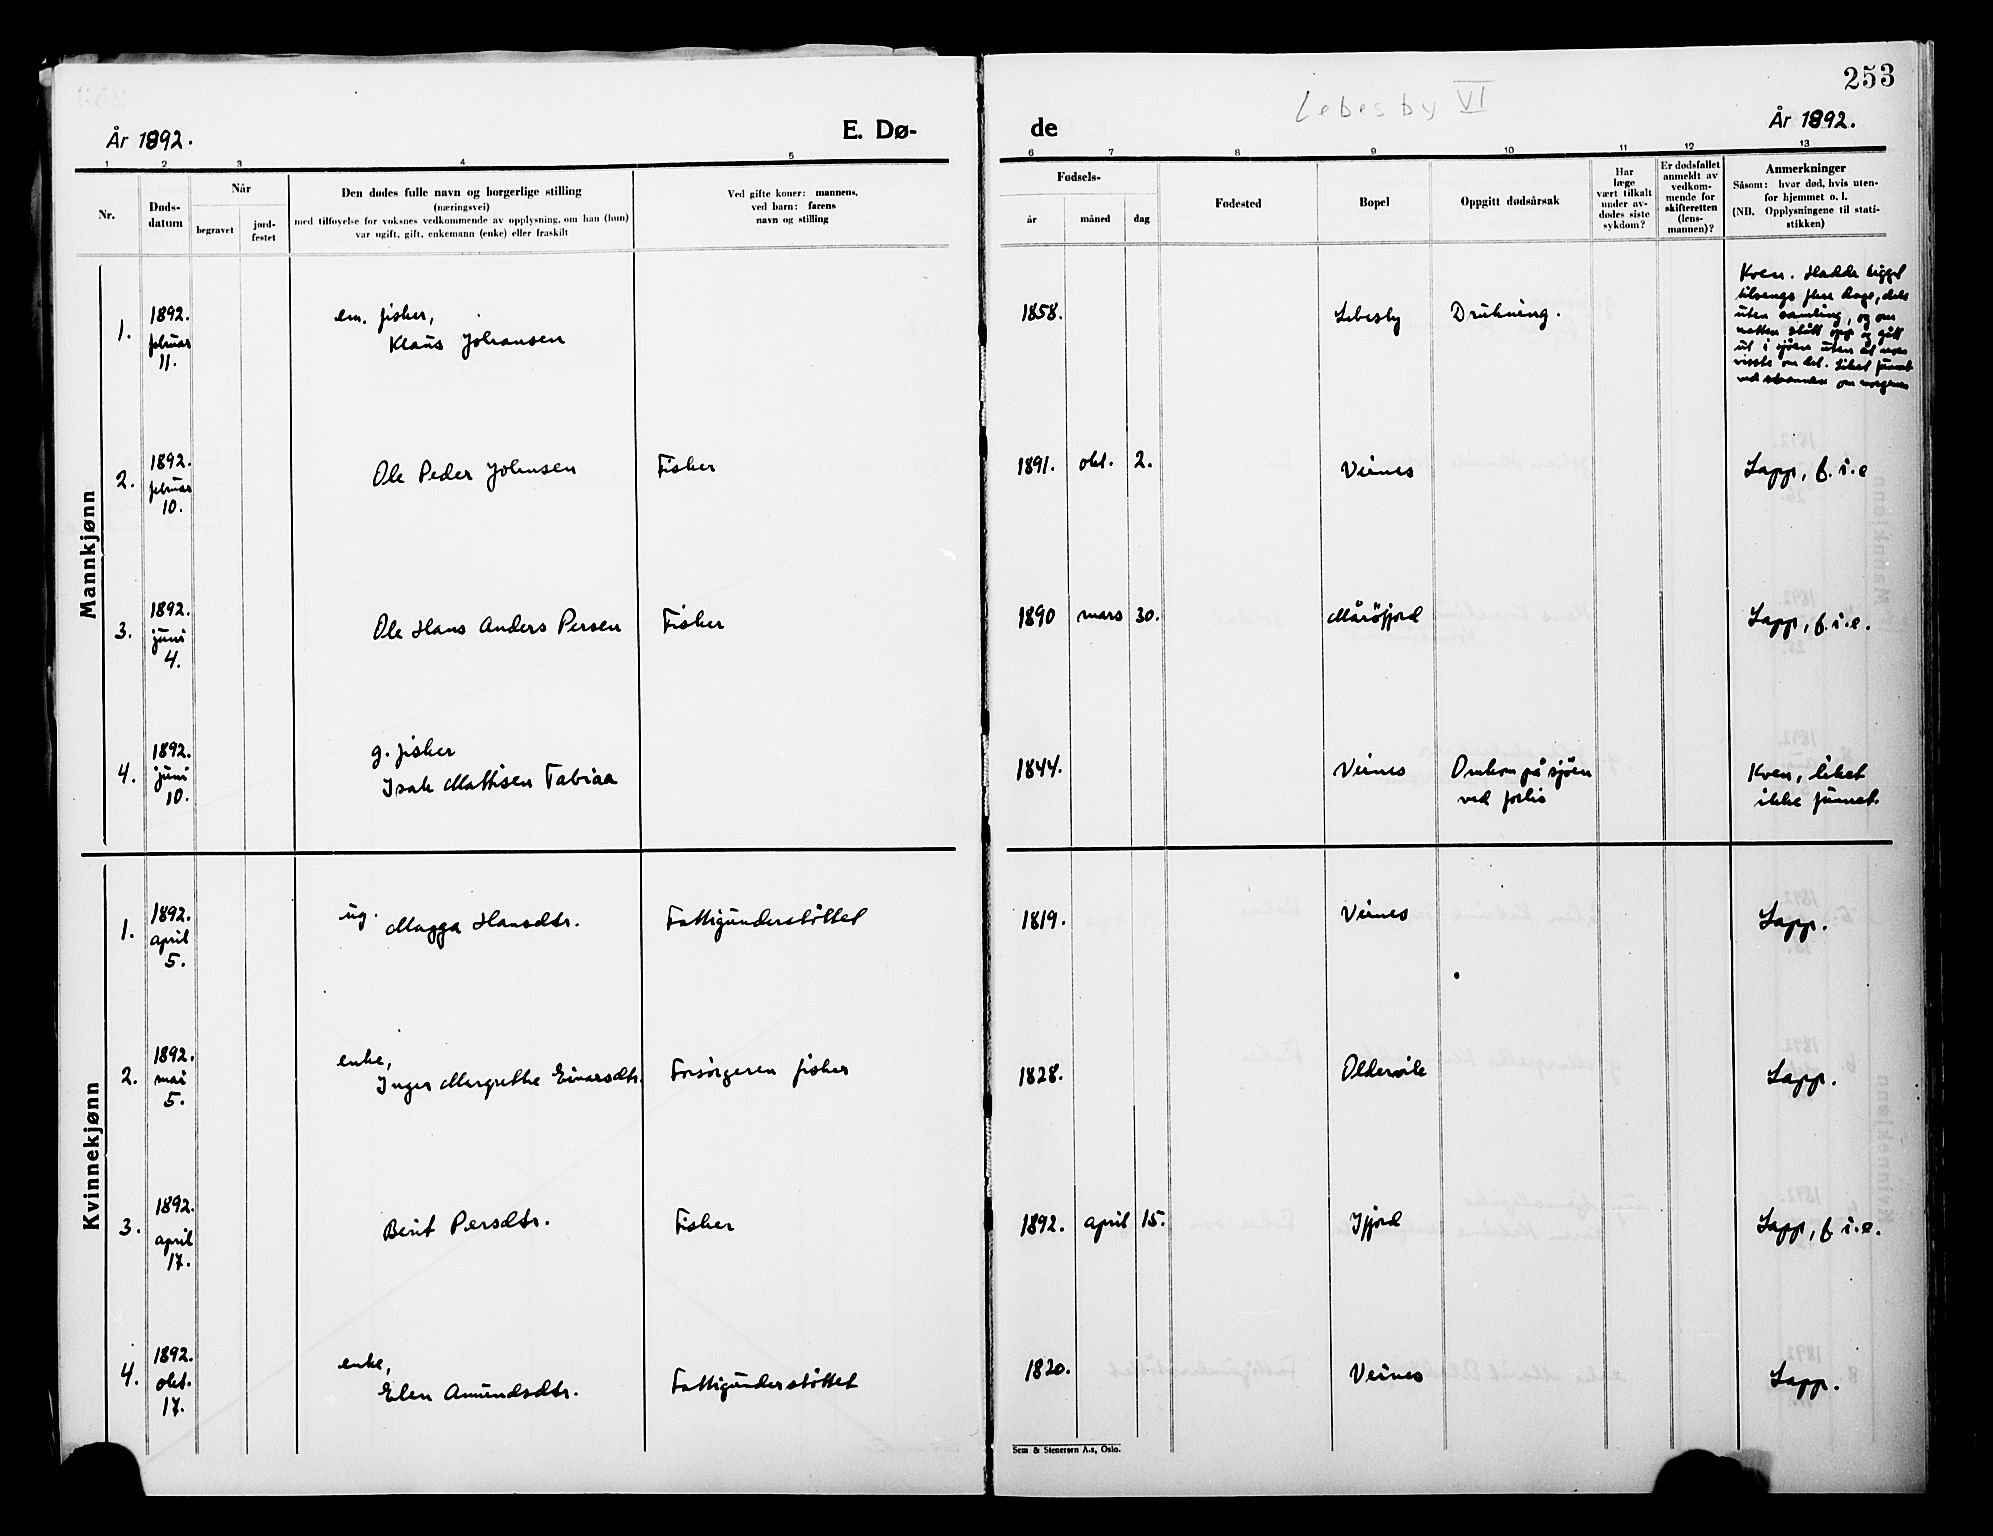 253
Lebesby VI
År 1892.
E. Dø-
de
År 1892.
1 2 3 4 5
6 7 8 9 10 11 12 13
Nr.
Døds-
datum
Når
begravet
jord-
festet
Den dødes fulle navn og borgerlige stilling
(næringsvei)
med tilføyelse for voksnes vedkommende av opplysning, om han (hun)
var ugift, gift, enkemann (enke) eller fraskilt
Ved gifte koner: mannens,
ved barn: farens
navn og stilling
Fødsels-
år
måned
dag
Fødested
Bopel
Oppgitt dødsårsak
Har
læge
vært tilkalt
under av-
dødes siste
sykdom?
Er dødsfallet
anmeldt av
vedkom-
mende for
skifteretten
(lens-
mannen)?
Anmerkninger
Såsom: hvor død, hvis uten-
for hjemmet o. l.
(NB. Opplysningene til stati-
stikken)
Mannkjønn
1.
1892.
februar
11.
em. fisker,
Klaus Johansen
1858.
Lebesby
Drukning.
Kven. Hadde ligget
tilsengs flere dage, dels
uten samling, og om
natten stått opp og gått
ut i sjøen uten at noen
visste om det. Liket funnet
ved stranden om morgenen
2.
1892.
februar
10.
Ole Peder Johnsen
Fisker
1891. okt. 2.
Veines
Lapp, f. i. e
3.
1892.
juni
4.
Ole Hans Anders Persen
Fisker
1890 mars 30.
Mårøfjord
Lapp, f. i. e.
4.
1892.
juni
10.
g. fisker
Isak Mathisen Tabiaa
1844.
Veines
Omkom på sjøen
ved forlis
Kven, liket
ikke funnet.
Kvinnekjønn
1.
1892.
april
5.
ug. Magga Hansdtr.
Fattigunderstøttet
1819.
Veines
Lapp.
2.
1892.
mai
5.
enke,
Inger Margrethe Einarsdtr.
Forsørgeren fisker
1828.
Oldervik
Lapp.
3.
1892.
april
17.
Berit Persdtr.
Fisker
1892. april 15.
Ifjord
Lapp, f. i. e.
4.
1892.
okt.
17.
enke,
Elen Amundsdtr.
Fattigunderstøttet
1820.
Veines
Lapp.
Sem & Stenersen A.s, Oslo.